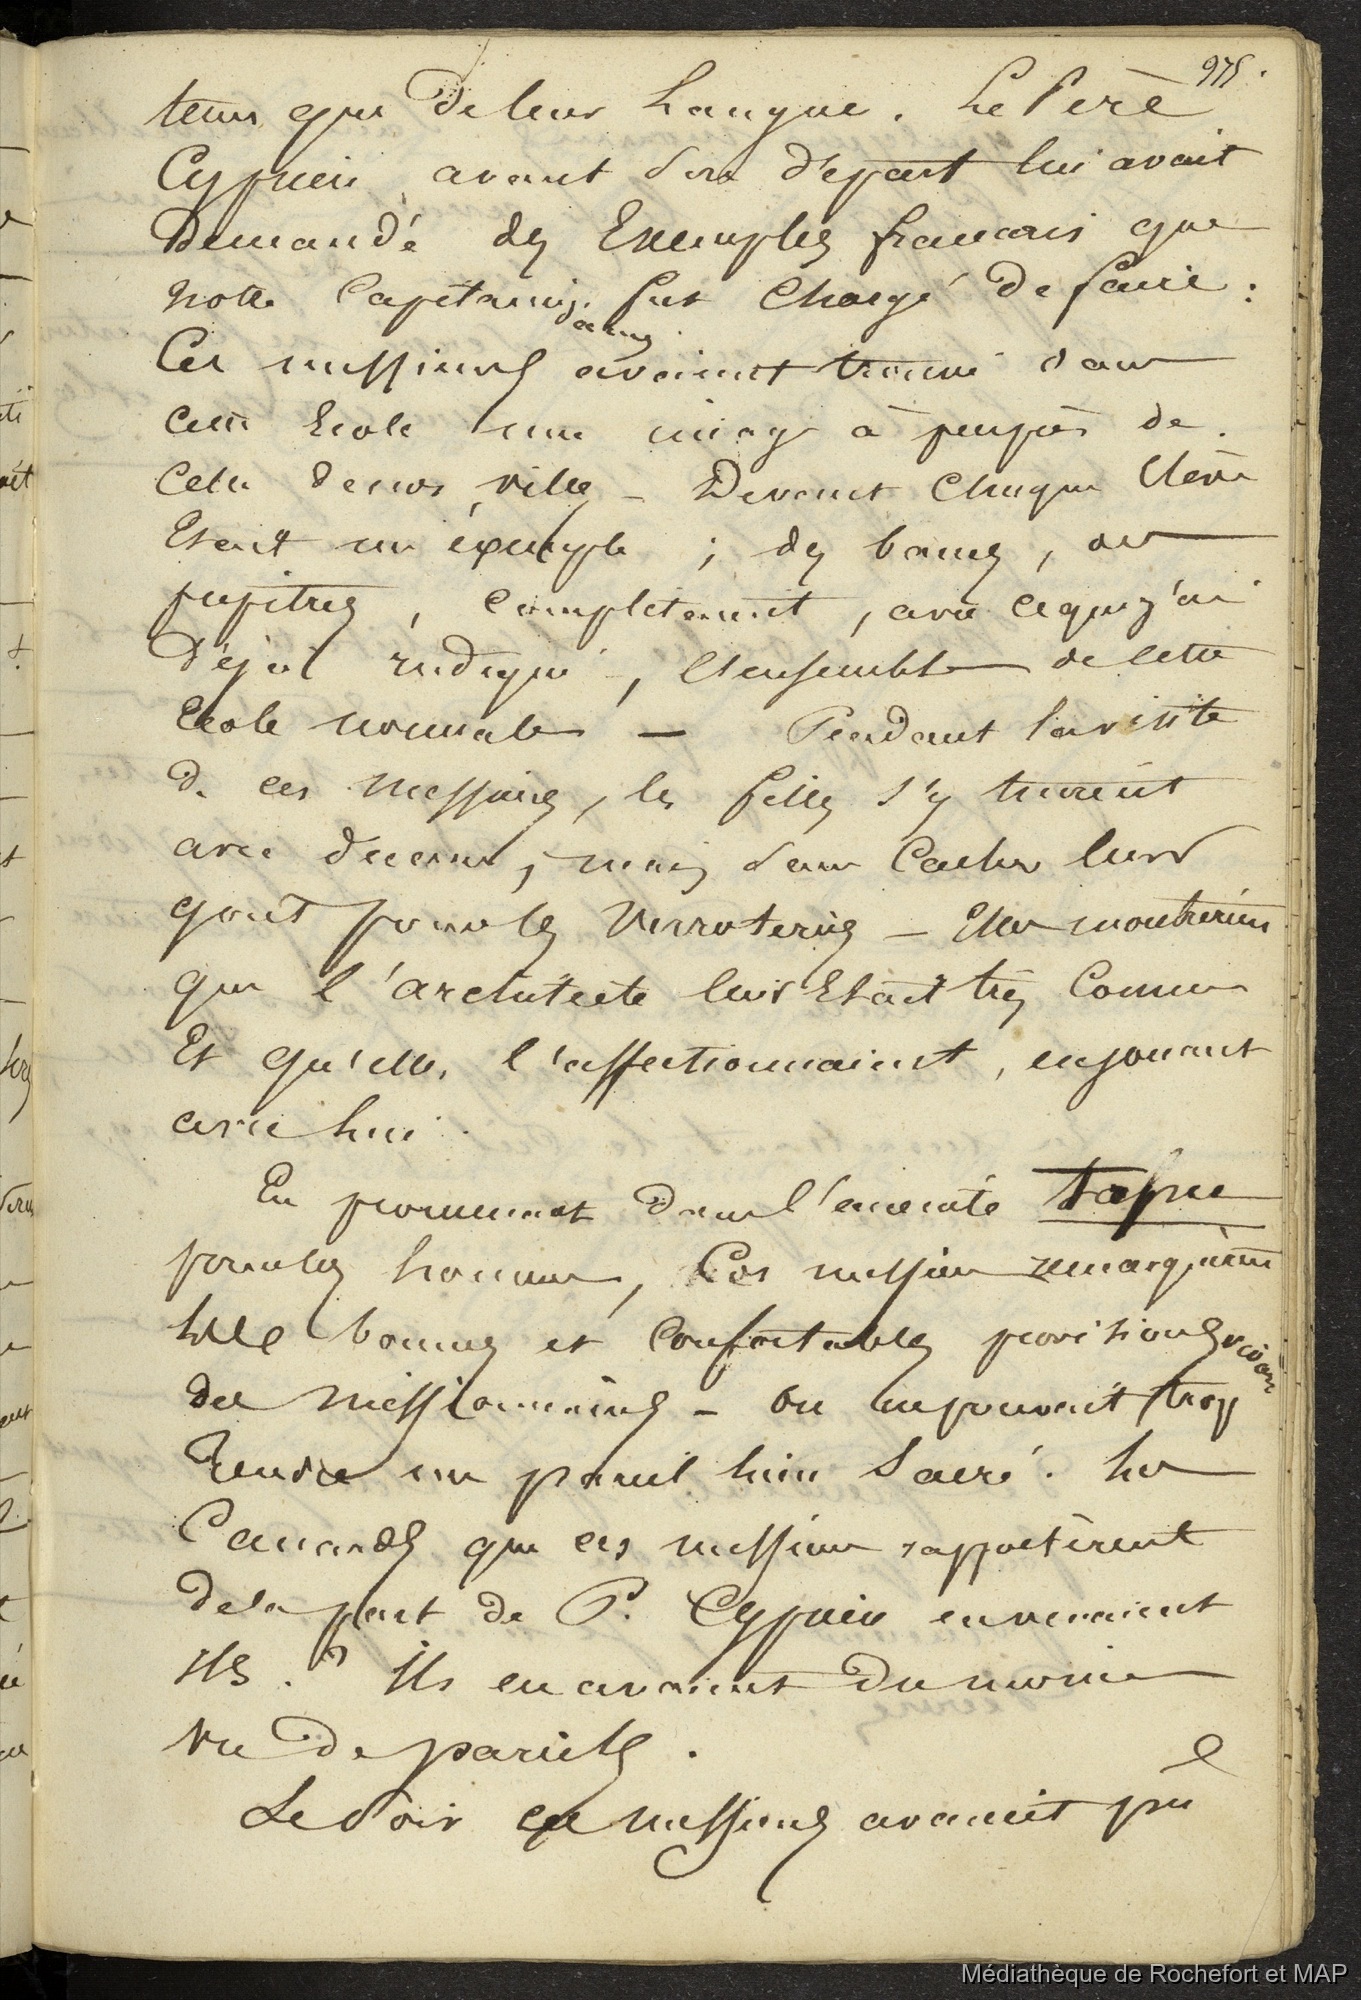 975.
teurs que de leur Langue. Le Père
Cyprien avant son départ lui avait
Demandé des Exemples francais que
notre Capitaine fut Chargé de faire :
Ces messieurs avaient trouvé dans
cette Ecole une image à peu près de
Celle de nos villes _ Devant Chaque Elève
Etait un éxemple ; des bancs, des
pupitres, Completaient, avec ce que j'ai
déjà indiqué, l'ensemble de cette
Ecole normale _ Pendant la visite
de ces messieurs, les filles s'y tinrent
avec décence, mais sans Cacher leur
gout pour les Verroteries _ Elles montrèrent
que l'architecte leur Etait très Connu
Et qu'elles l'affectionnaient, en jouant
avec lui.
En promenant dans l'enceinte tapue
pour les hommes, Ces messieurs remarquèrent
les bonnes et Confortables provisions
des missionnaires _ on ne pouvait trop
Rendre un pareil lieu Sacré. Les
Canards que ces messieurs rapportèrent
de la part de P. Cyprien en venaient
ils. ? Ils en avaient du moins
vu de pareils.
Le soir ces messieurs avaient pris